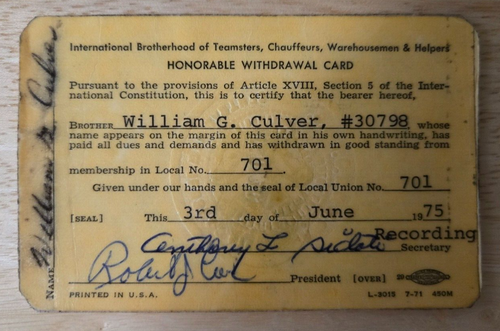 International Brotherhood of Teamsters, Chauffeurs, Warehousemen & Helpers
HONORABLE WITHDRAWAL CARD
Pursuant to the provisions of Article XVIII, Section 5 of the Inter-
national Constitution, this is to certify that the bearer hereof,
BROTHER William G. Culver, #30798 whose
name appears on the margin of this card in his own handwriting, has
paid all dues and demands and has withdrawn in good standing from
membership in Local No. 701.
Given under our hands and the seal of Local Union No. 701
[SEAL] This 3rd day of June 1975
Anthony L
Recording
Secretary
Robert J
President [OVER]
PRINTED IN U.S.A.
L-3015 7-71 450M
NAME William G Culver